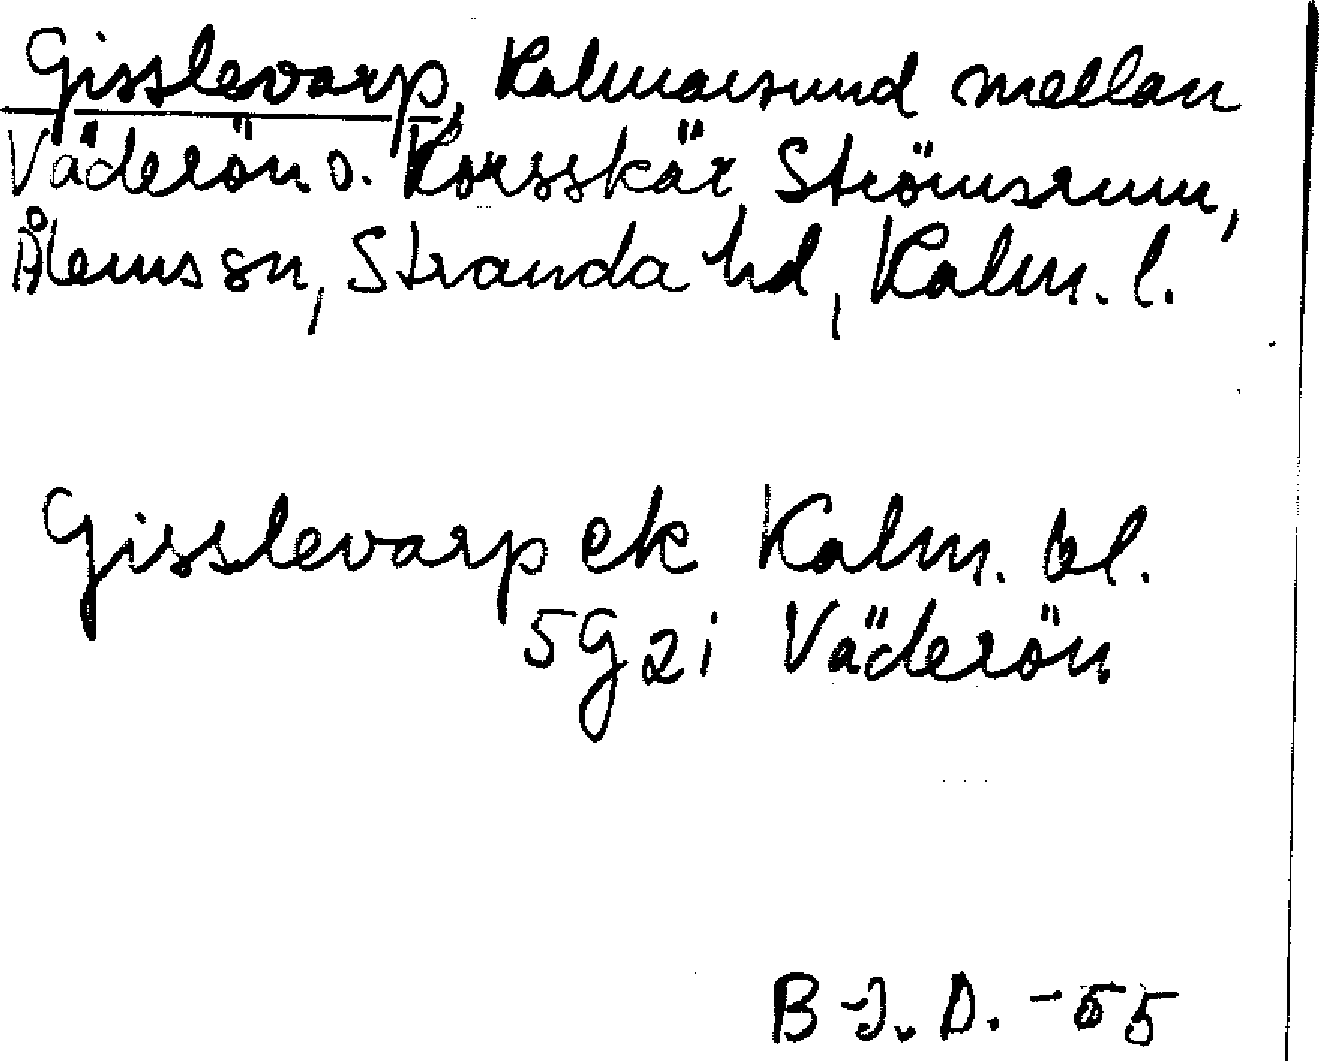 Gisslevarp, Kalmarsund mellan
Väderön o. Korsskär, Strömsrum,
Ålems sn, Stranda hd, Kalm. l.
Gisslevarp ek Kalm. bl.
5G2i Väderön
B-J. D. -55